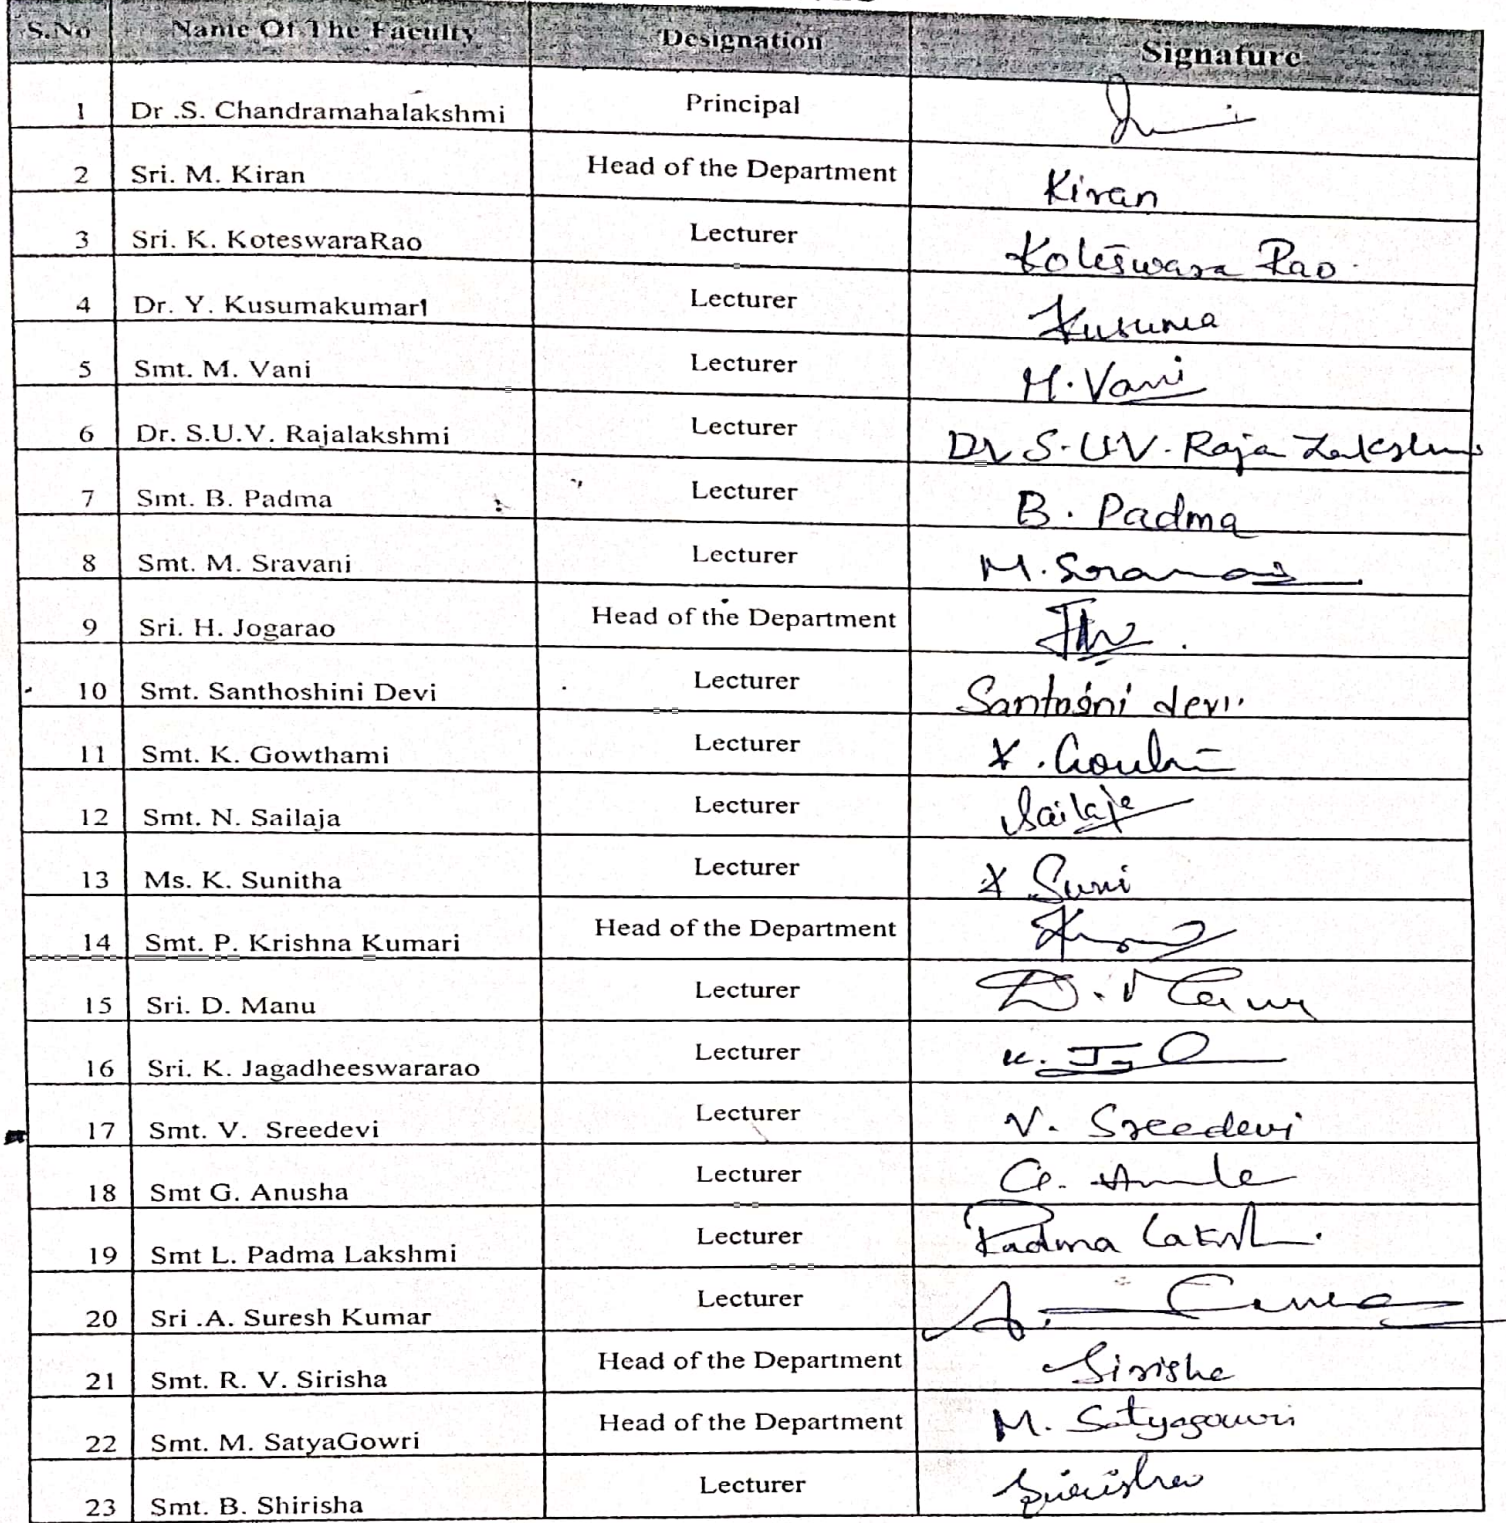 S.No Name Of The Faculty Designation Signature
1 Dr .S. Chandramahalakshmi Principal
2 Sri. M. Kiran Head of the Department Kiran
3 Sri. K. KoteswaraRao Lecturer Koteswara Rao
4 Dr. Y. Kusumakumari Lecturer Kusuma
5 Smt. M. Vani Lecturer M. Vani
6 Dr. S.U.V. Rajalakshmi Lecturer Dr S.U.V. Raja Lakshmi
7 Smt. B. Padma Lecturer B. Padma
8 Smt. M. Sravani Lecturer M. Sravani
9 Sri. H. Jogarao Head of the Department
10 Smt. Santhoshini Devi Lecturer Santosini devi
11 Smt. K. Gowthami Lecturer
12 Smt. N. Sailaja Lecturer Sailaja
13 Ms. K. Sunitha Lecturer K Suni
14 Smt. P. Krishna Kumari Head of the Department
15 Sri. D. Manu Lecturer D. Manu
16 Sri. K. Jagadheeswararao Lecturer
17 Smt. V. Sreedevi Lecturer V. Sreedevi
18 Smt G. Anusha Lecturer
19 Smt L. Padma Lakshmi Lecturer Padma Laksh
20 Sri .A. Suresh Kumar Lecturer
21 Smt. R. V. Sirisha Head of the Department Sirisha
22 Smt. M. SatyaGowri Head of the Department M. Satyagowri
23 Smt. B. Shirisha Lecturer